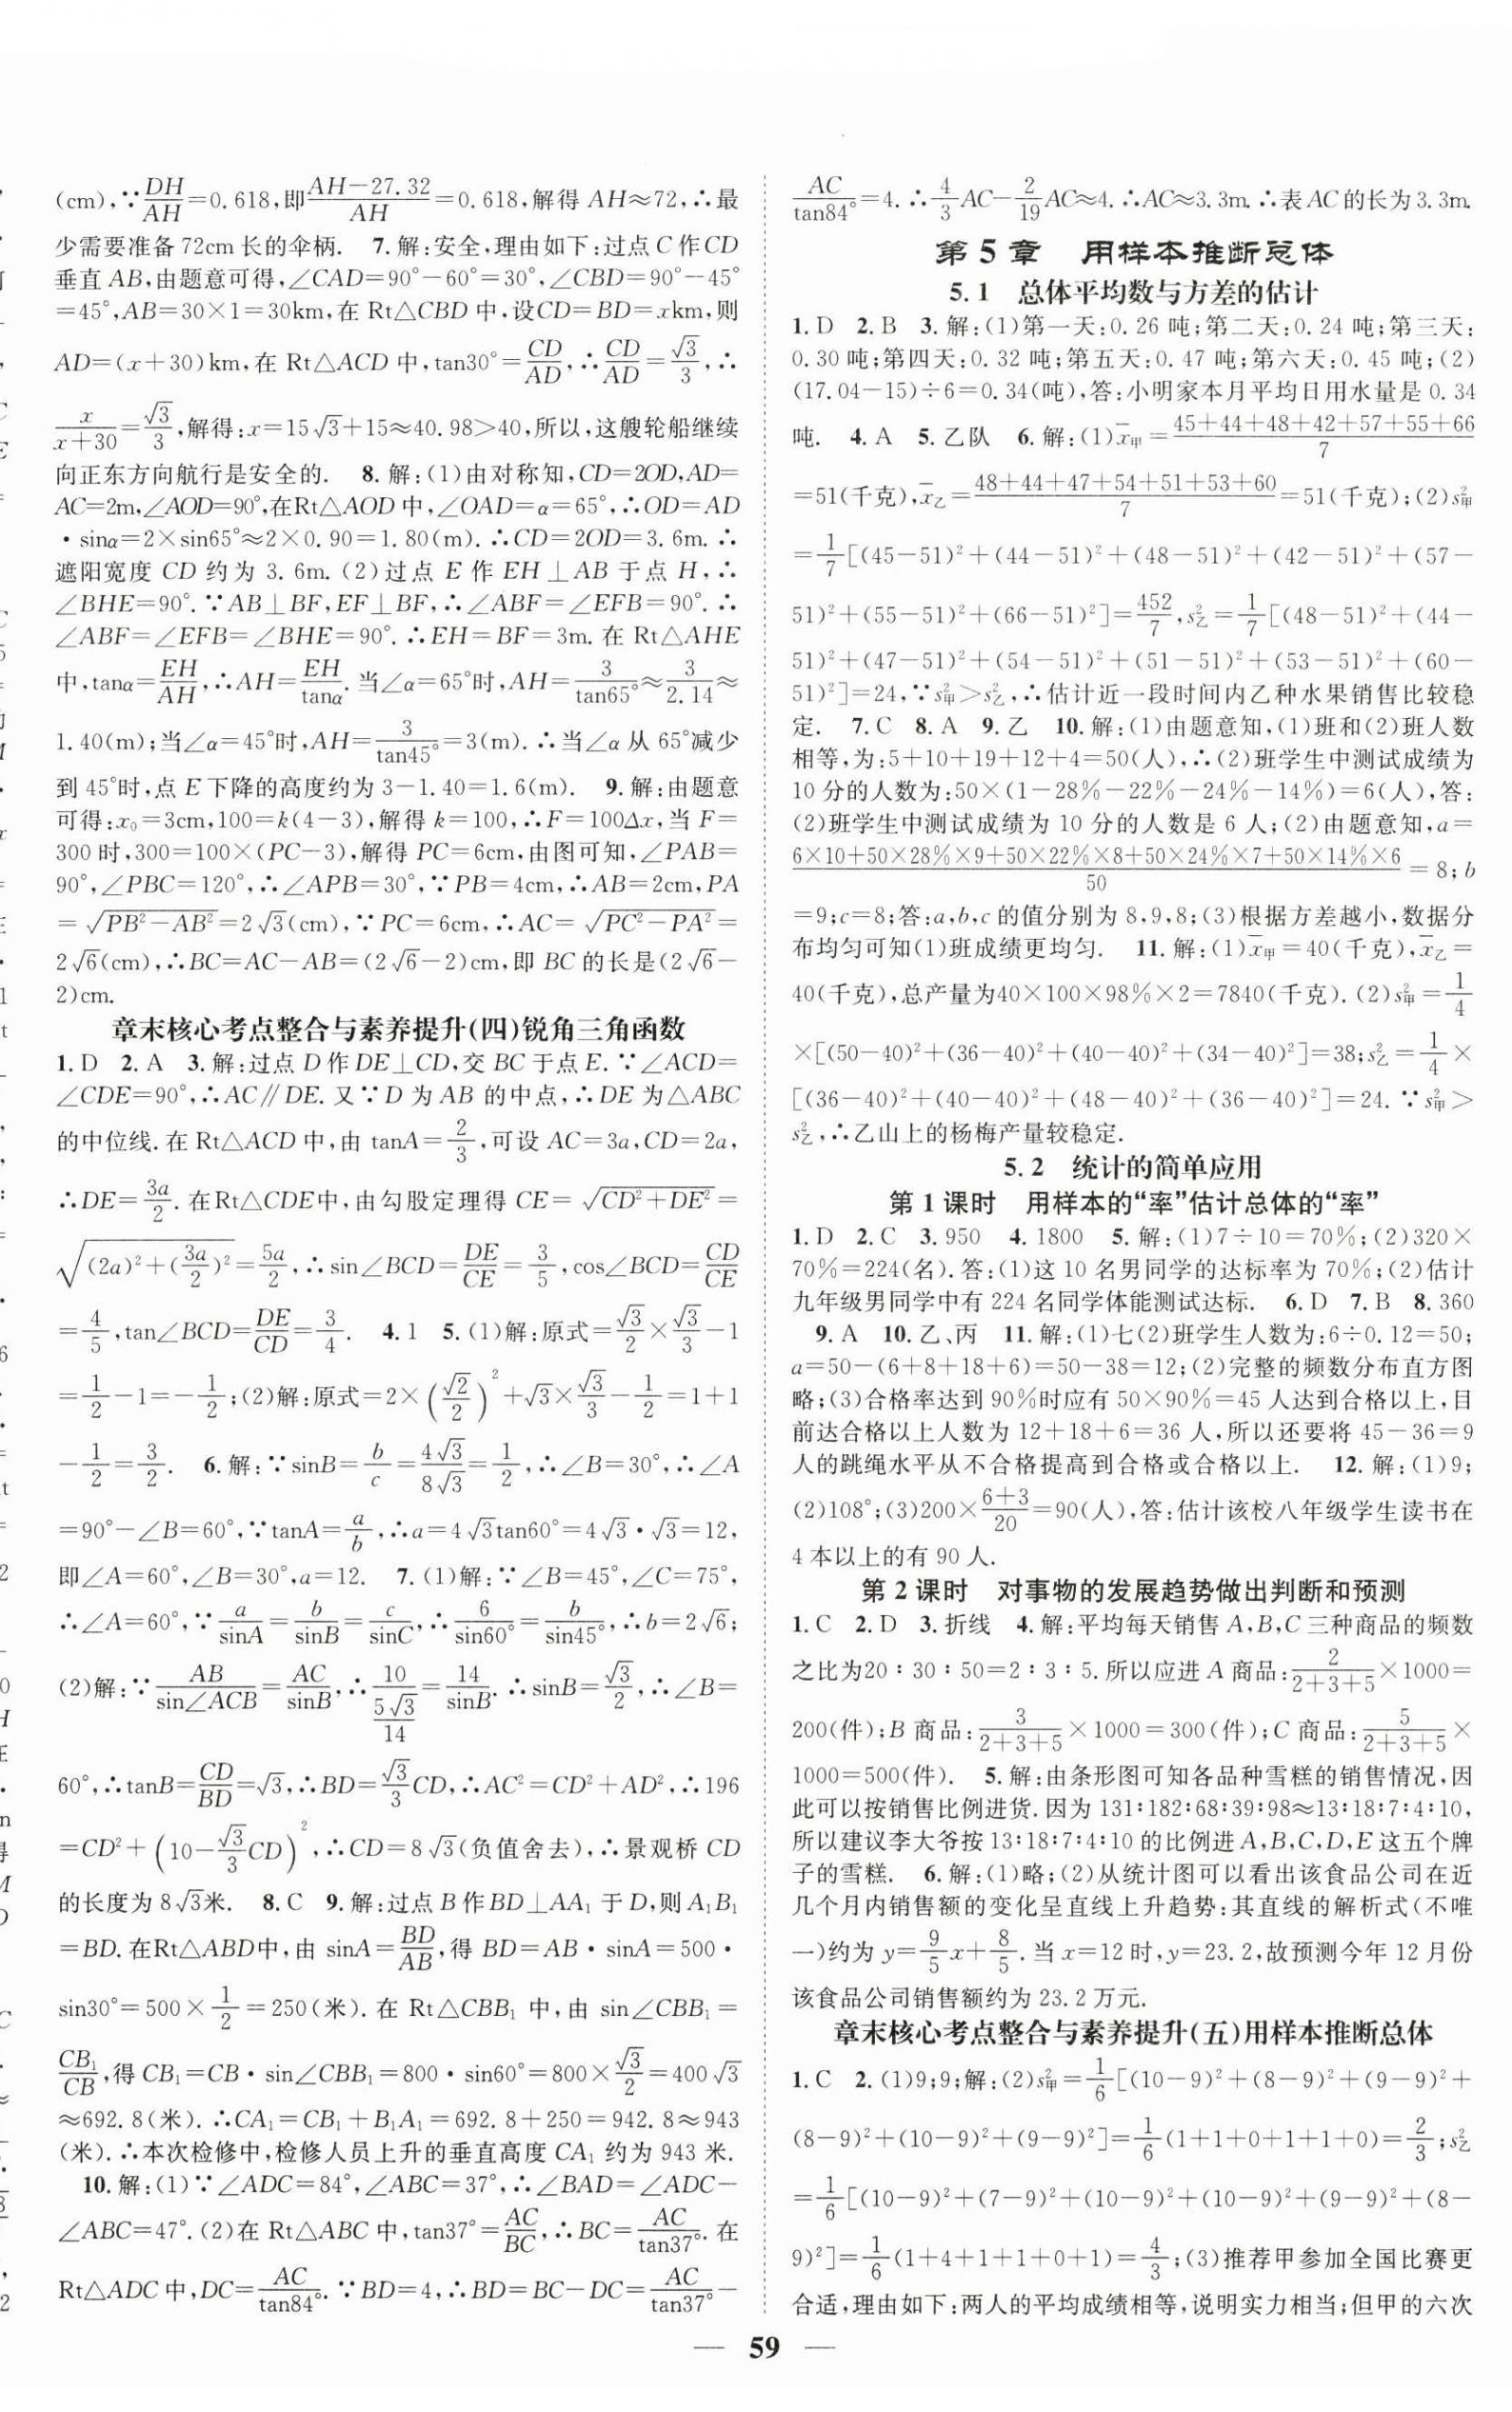 (cm),∵DH/AH=0.618,即(AH-27.32)/AH=0.618,解得 AH≈72,∴最
少需要准备 72cm 长的伞柄. 7.解:安全,理由如下:过点 C 作 CD
垂直 AB,由题意可得,∠CAD=90°-60°=30°,∠CBD=90°-45°
=45°,AB=30×1=30km,在 Rt△CBD 中,设CD=BD=xkm,则
AD=(x+30)km,在 Rt△ACD 中,tan30°=CD/AD,∴CD/AD=√3/3,∴
x/(x+30)=√3/3,解得:x=15√3+15≈40.98>40,所以,这艘轮船继续
向正东方向航行是安全的. 8.解:(1)由对称知,CD=2OD,AD=
AC=2m,∠AOD=90°,在Rt△AOD 中,∠OAD=α=65°,∴OD=AD
·sinα=2×sin65°≈2×0.90=1.80(m).∴CD=2OD=3.6m.∴
遮阳宽度 CD 约为 3.6m.(2)过点 E 作 EH⊥AB 于点 H,∴
∠BHE=90°.∵AB⊥BF,EF⊥BF,∴∠ABF=∠EFB=90°.∴
∠ABF=∠EFB=∠BHE=90°.∴EH=BF=3m.在 Rt△AHE
中,tanα=EH/AH,∴AH=EH/tanα.当∠α=65°时,AH=3/tan65°≈3/2.14≈
1.40(m);当∠α=45°时,AH=3/tan45°=3(m).∴当∠α 从 65°减少
到 45°时,点 E 下降的高度约为 3-1.40=1.6(m). 9.解:由题意
可得:x₀=3cm,100=k(4-3),解得 k=100,∴F=100Δx,当 F=
300 时,300=100×(PC-3),解得 PC=6cm,由图可知,∠PAB=
90°,∠PBC=120°,∴∠APB=30°,∵PB=4cm,∴AB=2cm,PA
=√(PB²-AB²)=2√3(cm),∵PC=6cm,∴AC=√(PC²-PA²)=
2√6(cm),∴BC=AC-AB=(2√6-2)cm,即 BC 的长是(2√6-
2)cm.
章末核心考点整合与素养提升(四)锐角三角函数
1.D 2.A 3.解:过点 D 作 DE⊥CD,交 BC 于点 E.∵∠ACD=
∠CDE=90°,∴AC∥DE.又∵D 为 AB 的中点,∴DE 为△ABC
的中位线.在 Rt△ACD 中,由 tanA=2/3,可设 AC=3a,CD=2a,
∴DE=3a/2.在Rt△CDE中,由勾股定理得 CE=√(CD²+DE²)=
√((2a)²+(3a/2)²)=5a/2,∴sin∠BCD=DE/CE=3/5,cos∠BCD=CD/CE
=4/5,tan∠BCD=DE/CD=3/4. 4.1 5.(1)解:原式=√3/2×√3/3-1
=1/2-1=-1/2;(2)解:原式=2×(√2/2)²+√3×√3/3-1/2=1+1
-1/2=3/2. 6.解:∵sinB=b/c=4√3/8√3=1/2,∴∠B=30°,∴∠A
=90°-∠B=60°,∵tanA=a/b,∴a=4√3tan60°=4√3·√3=12,
即∠A=60°,∠B=30°,a=12. 7.(1)解:∵∠B=45°,∠C=75°,
∴∠A=60°,∵a/sinA=b/sinB=c/sinC,∴6/sin60°=b/sin45°,∴b=2√6;
(2)解:∵AB/sin∠ACB=AC/sinB,∴10/(5√3/14)=14/sinB.∴sinB=√3/2,∴∠B=
60°,∴tanB=CD/BD=√3,∴BD=√3/3CD,∴AC²=CD²+AD²,∴196
=CD²+(10-√3/3CD)²,∴CD=8√3(负值舍去),∴景观桥 CD
的长度为 8√3米. 8.C 9.解:过点 B 作 BD⊥AA₁ 于 D,则 A₁B₁
=BD.在Rt△ABD中,由 sinA=BD/AB,得 BD=AB·sinA=500·
sin30°=500×1/2=250(米).在 Rt△CBB₁ 中,由 sin∠CBB₁=
CB₁/CB,得 CB₁=CB·sin∠CBB₁=800·sin60°=800×√3/2=400√3
≈692.8(米).∴CA₁=CB₁+B₁A₁=692.8+250=942.8≈943
(米).∴本次检修中,检修人员上升的垂直高度 CA₁ 约为 943 米.
10.解:(1)∵∠ADC=84°,∠ABC=37°,∴∠BAD=∠ADC-
∠ABC=47°.(2)在 Rt△ABC 中,tan37°=AC/BC,∴BC=AC/tan37°.在
Rt△ADC 中,DC=AC/tan84°.∵BD=4,∴BD=BC-DC=AC/tan37°-
AC/tan84°=4.∴4/3AC-2/19AC≈4.∴AC≈3.3m.∴表 AC 的长为 3.3m.
第 5 章 用样本推断总体
5.1 总体平均数与方差的估计
1.D 2.B 3.解:(1)第一天:0.26 吨;第二天:0.24 吨;第三天:
0.30 吨;第四天:0.32 吨;第五天:0.47 吨;第六天:0.45 吨;(2)
(17.04-15)÷6=0.34(吨),答:小明家本月平均日用水量是 0.34
吨. 4.A 5.乙队 6.解:(1)x̄甲=(45+44+48+42+57+55+66)/7
=51(千克),x̄乙=(48+44+47+54+51+53+60)/7=51(千克);(2)s²甲
=1/7[(45-51)²+(44-51)²+(48-51)²+(42-51)²+(57-
51)²+(55-51)²+(66-51)²]=452/7,s²乙=1/7[(48-51)²+(44-
51)²+(47-51)²+(54-51)²+(51-51)²+(53-51)²+(60-
51)²]=24,∵s²甲>s²乙,∴估计近一段时间内乙种水果销售比较稳
定. 7.C 8.A 9.乙 10.解:(1)由题意知,(1)班和(2)班人数
相等,为:5+10+19+12+4=50(人),∴(2)班学生中测试成绩为
10 分的人数为:50×(1-28%-22%-24%-14%)=6(人),答:
(2)班学生中测试成绩为 10 分的人数是 6 人;(2)由题意知,a=
(6×10+50×28%×9+50×22%×8+50×24%×7+50×14%×6)/50=8;b
=9;c=8;答:a,b,c 的值分别为 8,9,8;(3)根据方差越小,数据分
布均匀可知(1)班成绩更均匀. 11.解:(1)x̄甲=40(千克),x̄乙=
40(千克),总产量为40×100×98%×2=7840(千克).(2)s²甲=1/4
×[(50-40)²+(36-40)²+(40-40)²+(34-40)²]=38;s²乙=1/4×
[(36-40)²+(40-40)²+(48-40)²+(36-40)²]=24.∵s²甲>
s²乙,∴乙山上的杨梅产量较稳定.
5.2 统计的简单应用
第 1 课时 用样本的“率”估计总体的“率”
1.D 2.C 3.950 4.1800 5.解:(1)7÷10=70%;(2)320×
70%=224(名).答:(1)这 10 名男同学的达标率为 70%;(2)估计
九年级男同学中有 224 名同学体能测试达标. 6.D 7.B 8.360
9.A 10.乙、丙 11.解:(1)七(2)班学生人数为:6÷0.12=50;
a=50-(6+8+18+6)=50-38=12;(2)完整的频数分布直方图
略;(3)合格率达到 90%时应有 50×90%=45 人达到合格以上,目
前达合格以上人数为 12+18+6=36 人,所以还要将 45-36=9
人的跳绳水平从不合格提高到合格或合格以上. 12.解:(1)9;
(2)108°;(3)200×(6+3)/20=90(人),答:估计该校八年级学生读书在
4 本以上的有 90 人.
第 2 课时 对事物的发展趋势做出判断和预测
1.C 2.D 3.折线 4.解:平均每天销售 A,B,C 三种商品的频数
之比为20∶30∶50=2∶3∶5.所以应进 A 商品:2/(2+3+5)×1000=
200(件);B 商品:3/(2+3+5)×1000=300(件);C 商品:5/(2+3+5)×
1000=500(件). 5.解:由条形图可知各品种雪糕的销售情况,因
此可以按销售比例进货.因为 131∶182∶68∶39∶98≈13∶18∶7∶4∶10,
所以建议李大爷按 13∶18∶7∶4∶10 的比例进 A,B,C,D,E 这五个牌
子的雪糕. 6.解:(1)略;(2)从统计图可以看出该食品公司在近
几个月内销售额的变化呈直线上升趋势:其直线的解析式(不唯
一)约为 y=9/5x+8/5.当 x=12 时,y=23.2,故预测今年 12 月份
该食品公司销售额约为 23.2 万元.
章末核心考点整合与素养提升(五)用样本推断总体
1.C 2.(1)9;9;解:(2)s²甲=1/6[(10-9)²+(8-9)²+(9-9)²+
(8-9)²+(10-9)²+(9-9)²]=1/6(1+1+0+1+1+0)=2/3;s²乙
=1/6[(10-9)²+(7-9)²+(10-9)²+(10-9)²+(9-9)²+(8-
9)²]=1/6(1+4+1+1+0+1)=4/3;(3)推荐甲参加全国比赛更
合适,理由如下:两人的平均成绩相等,说明实力相当;但甲的六次
— 59 —